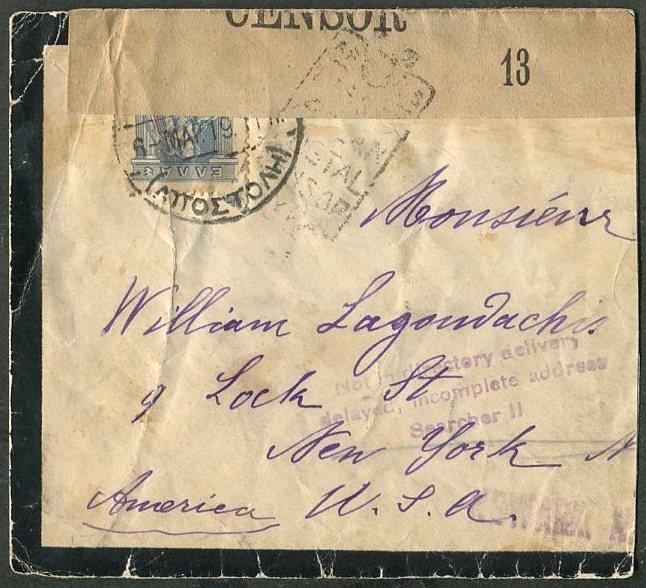 CENSOR
13
ΕΛΛΑΣ
ΑΠΟΣΤΟΛΗ
Monsiéur
William Lagoudachis
9 Lock St
New York N
America U.S.A.
Not in directory delivery
delayed, incomplete address
Searcher 11
NEWARK N